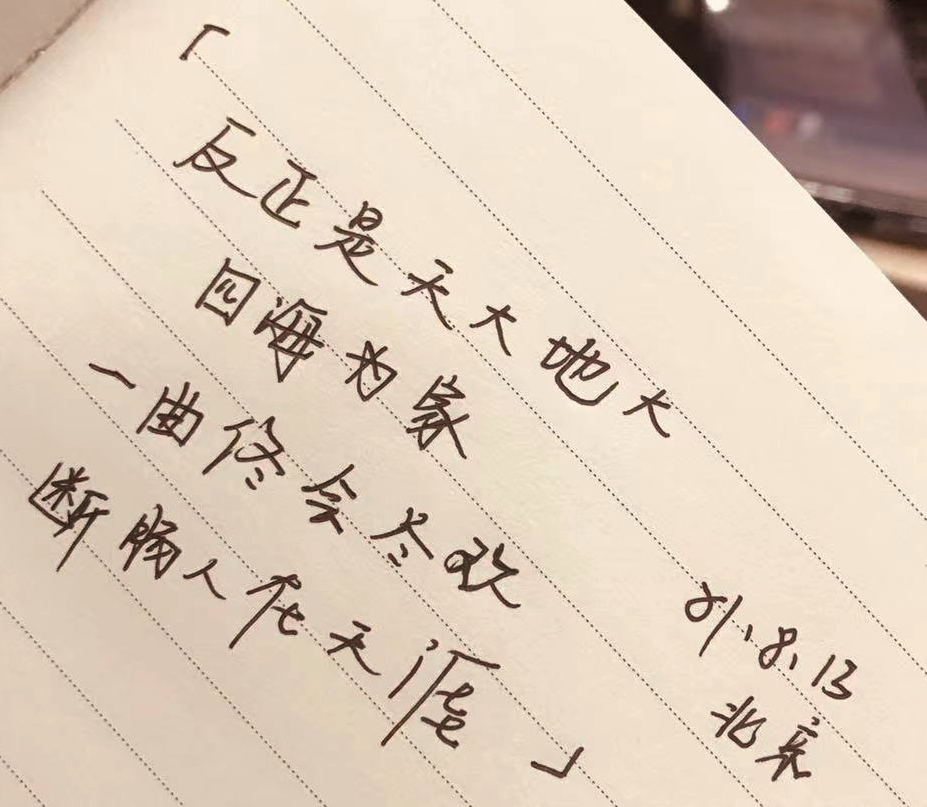 「
反正是天大地大
四海为家
一曲终会尽欢
断肠人在天涯」
21.8.13
北京